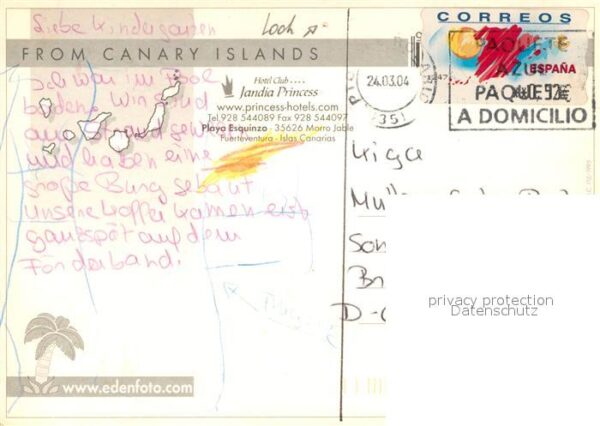 Liebe Kindergarten
Look
FROM CANARY ISLANDS
Hotel Club ....
Jandia Princess
www.princess-hotels.com
Tel.928 544089 Fax 928 544097
Playa Esquinzo - 35626 Morro Jable
Fuerteventura - Islas Canarias
ich war im Pool
baden. Wir sind
am Strand
und haben eine
große Burg gebaut
unsere Koffer kamen erst
ganz spät auf dem
Förderband.
www.edenfoto.com
CORREOS
ESPAÑA
24.03.04
35
PAQUETE
AZUL
PAQUETE
A DOMICILIO
Kiga
D-
privacy protection
Datenschutz